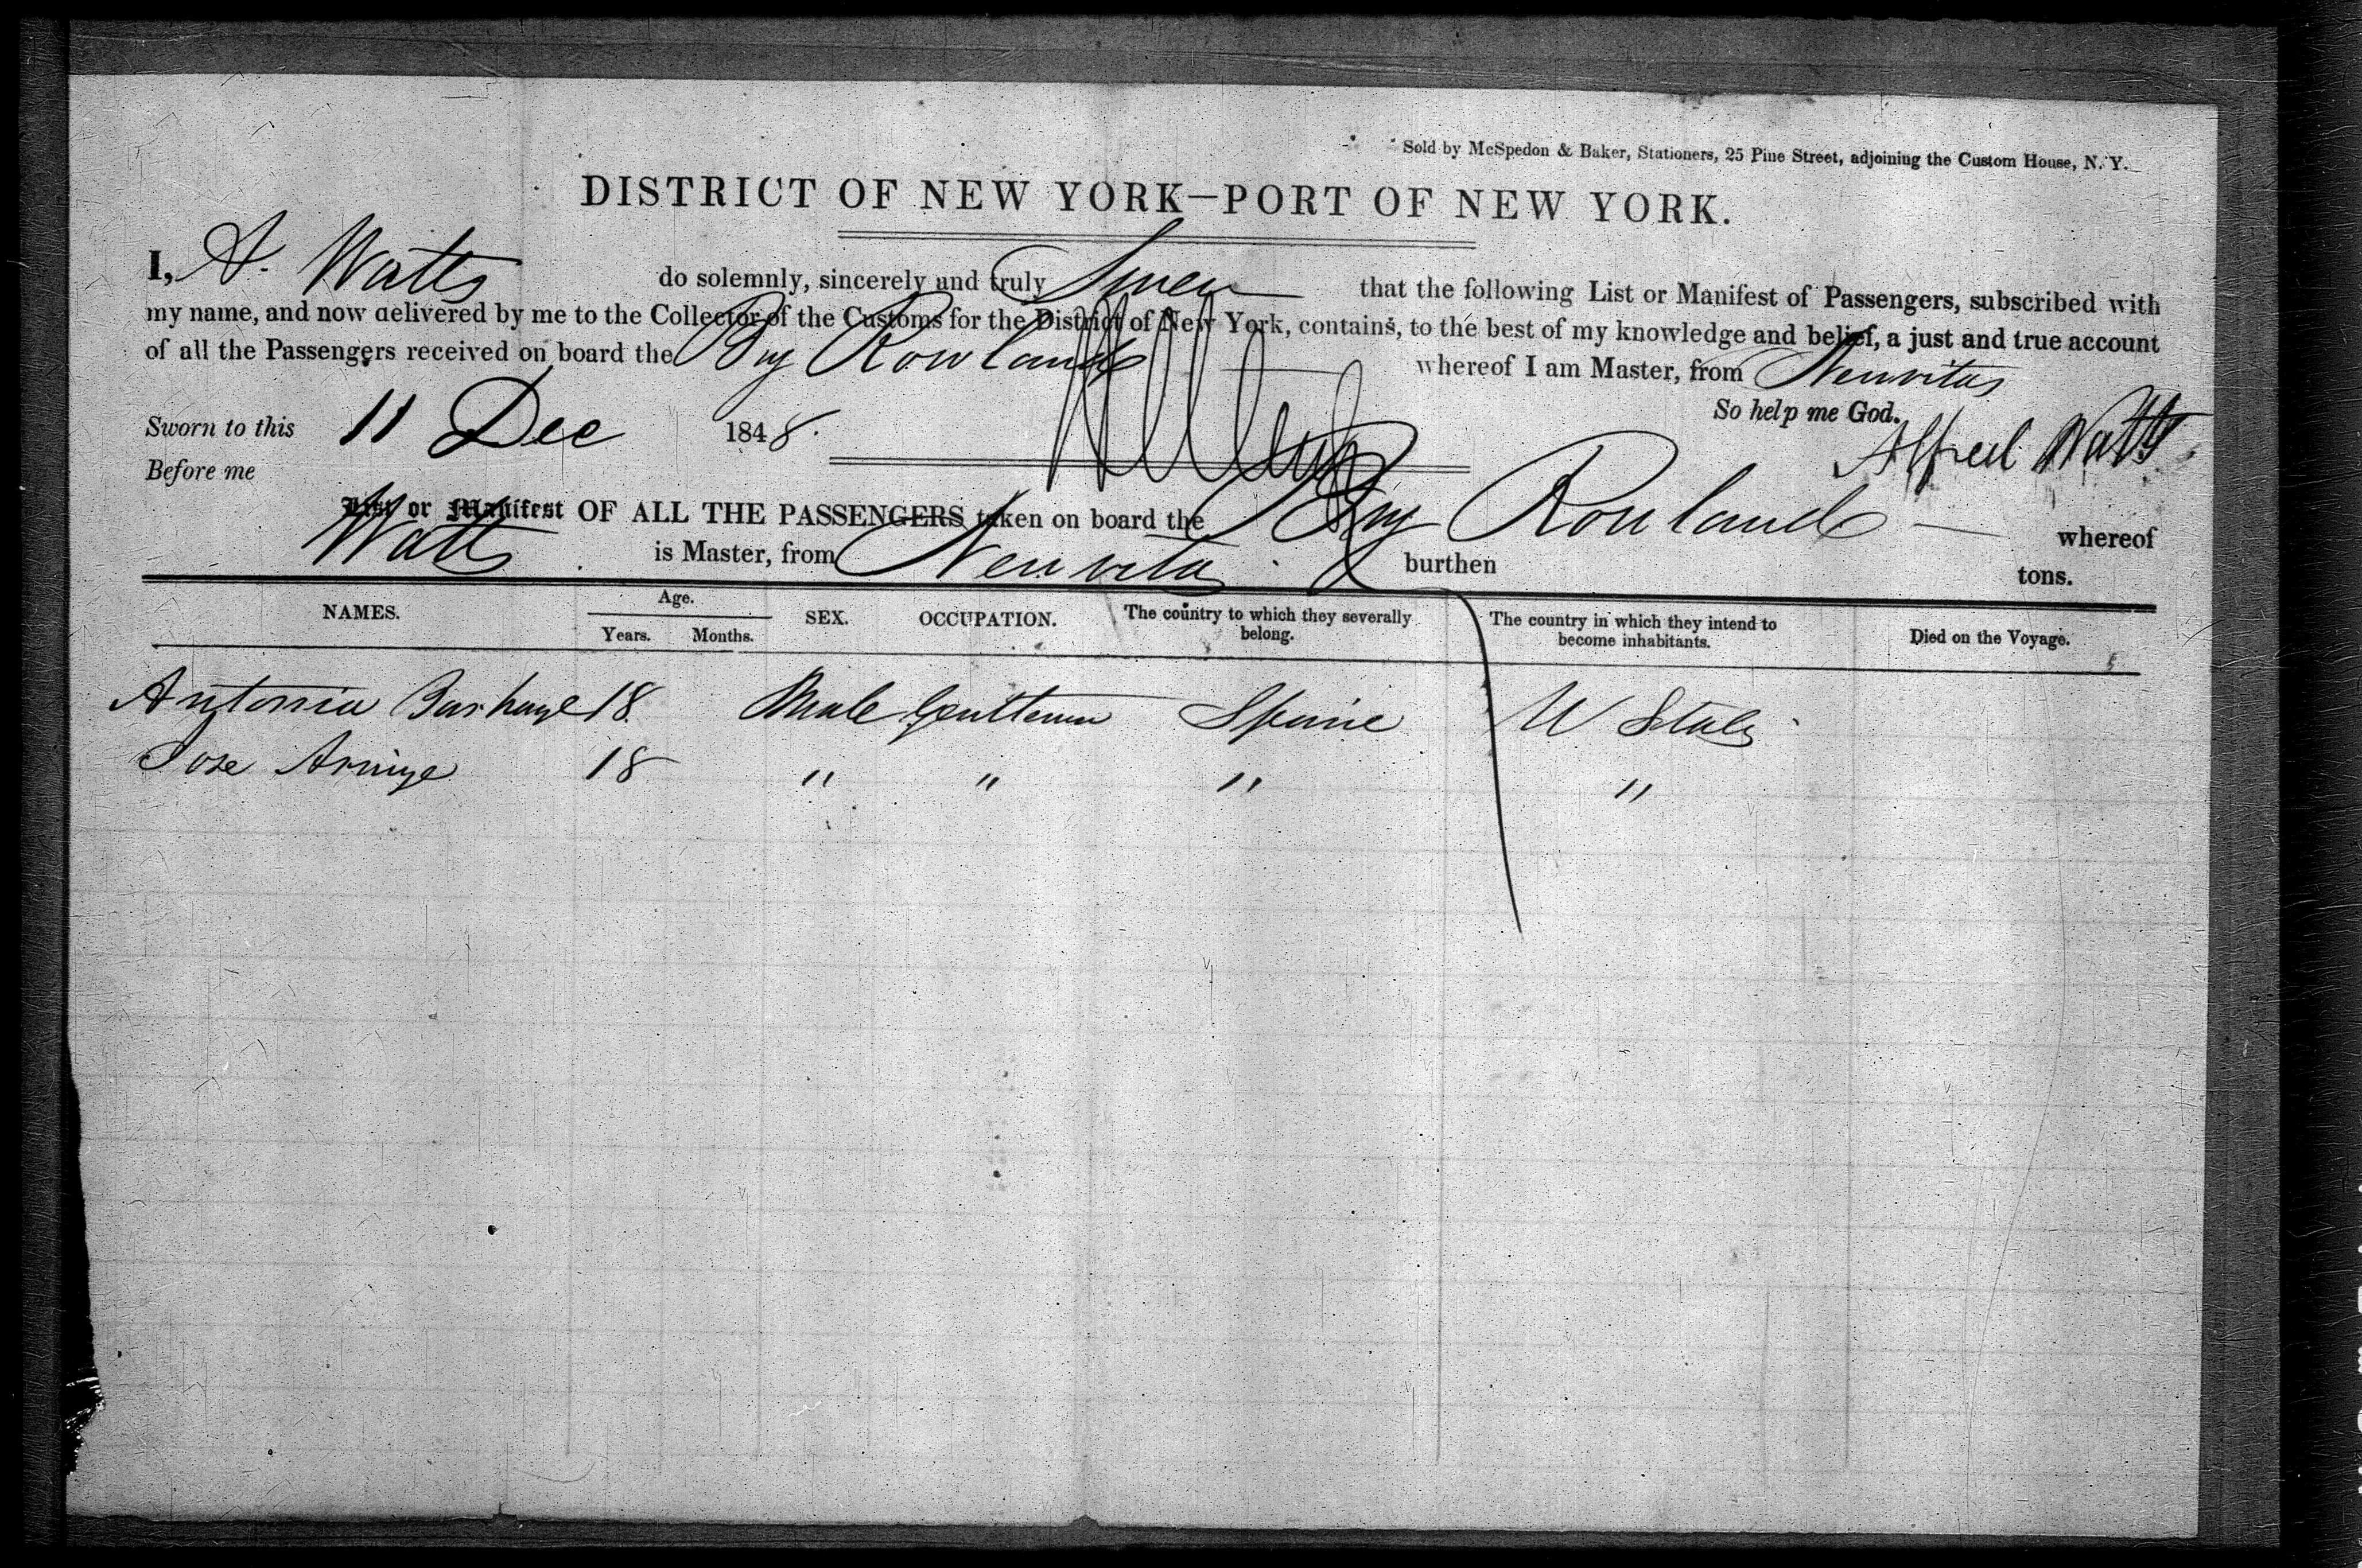 Sold by McSpedon & Baker, Stationers, 25 Pine Street, adjoining the Custom House, N. Y.
DISTRICT OF NEW YORK—PORT OF NEW YORK.
I, A. Watts do solemnly, sincerely and truly Swear that the following List or Manifest of Passengers, subscribed with
my name, and now delivered by me to the Collector of the Customs for the District of New York, contains, to the best of my knowledge and belief, a just and true account
of all the Passengers received on board the Brig Rowland whereof I am Master, from Neuvitas
So help me God.
Sworn to this 11 Dec 1848. Alfred Watts
Before me
List or Manifest OF ALL THE PASSENGERS taken on board the Brig Rowland whereof
Watts is Master, from Neuvitas burthen tons.
NAMES. Age. Years. Months. SEX. OCCUPATION. The country to which they severally belong. The country in which they intend to become inhabitants. Died on the Voyage.
Antonia 18 Male Gentleman Spain U States
Jose 18 " " " "